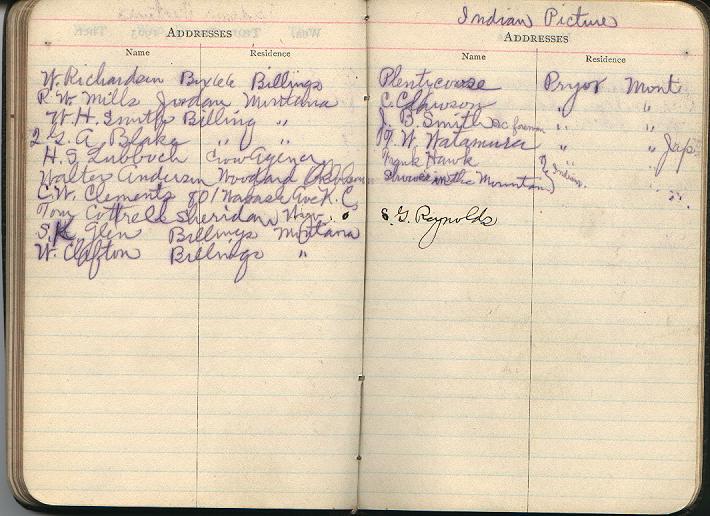 ADDRESSES
Name Residence
W. Richardson Box 66 Billings
R. W. Mills Jordan Montana
W. H. Smith Billing "
G. A. Blake " "
H. S. Lubboch Crow Agency
Walter Anderson Woodland
C. W. Clements 801 Wabash Ave K. C.
Tom Cottrell Sheridan Wyo.
S. K. Glen Billings Montana
W. Clafton Billings "
Indian Picture
ADDRESSES
Name Residence
Plentycouse Pryor Mont
C. C. Clawson " "
J. B. Smith foreman " "
W. Watamura " " Jap
Frank Hawk
in the Mountain Indian
S. G. Reynolds